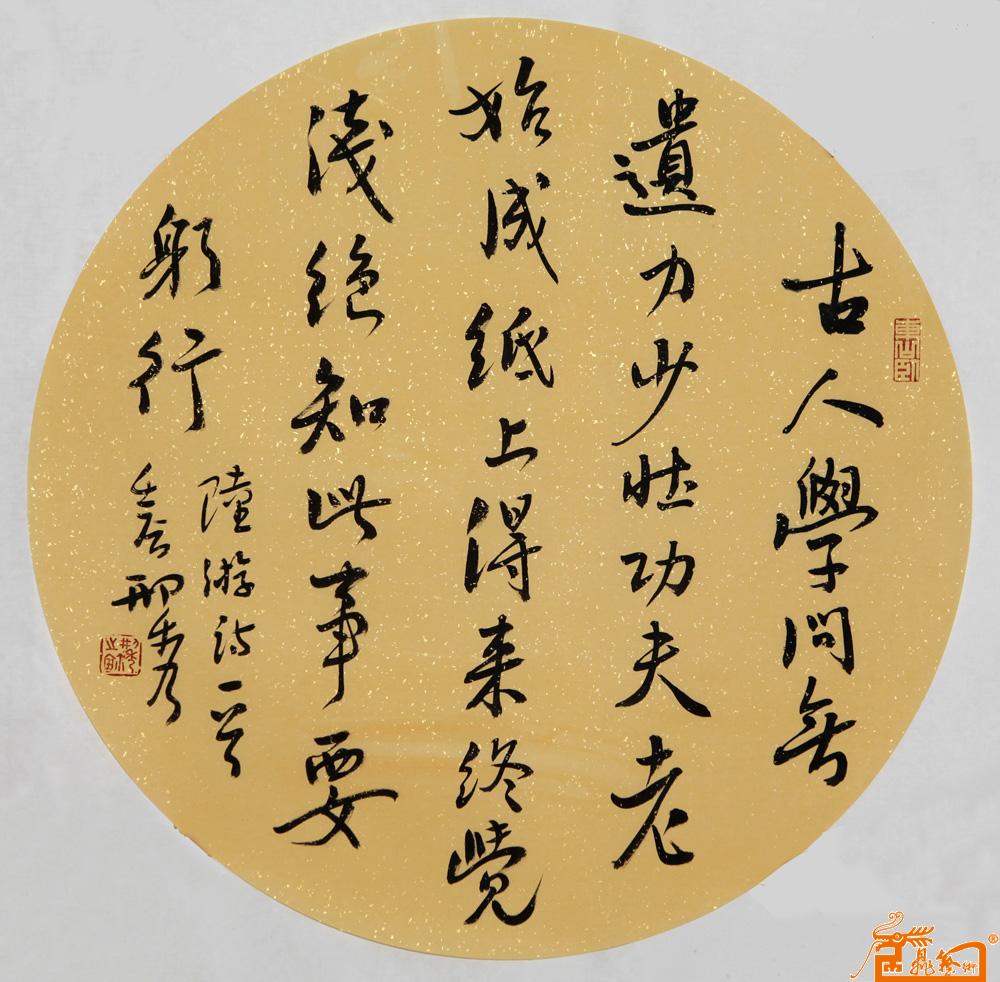 古人學問無
遺力少壯功夫老
始成紙上得來終覺
淺絕知此事要
躬行
陸游詩一首